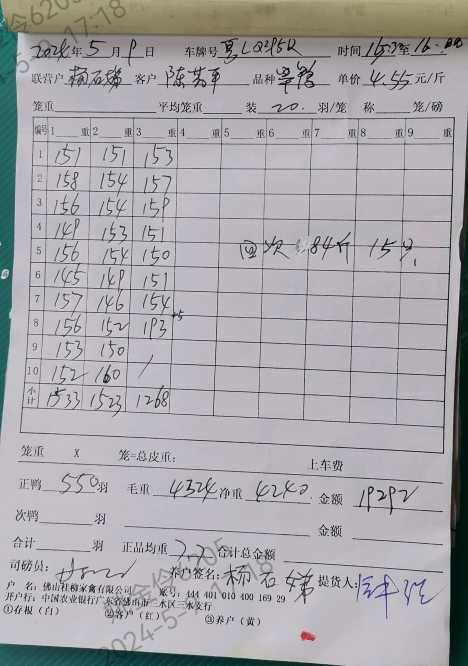 2024年5月9日 车牌号 时间
联营户 杨石娣 客户 品种 单价 4.55 元/斤
笼重 平均笼重 装 20. 羽/笼 称 笼/磅
编号 1 重 2 重 3 重 4 重 5 重 6 重 7 重 8 重 9 重
1 151 151 153
2 158 154 157
3 156 154 159
4 149 153 151
5 156 154 150
6 145 149 151
7 157 146 154
8 156 152 193 +5
9 153 150 /
10 152 160
小计 1533 1523 1268
四次 84斤 15只
笼重 X 笼=总皮重: 上车费
正鸭 550 羽 毛重 4324 净重 4240 金额 19292
次鸭 羽 金额
合计 羽 正品均重 7.7 合计总金额
司磅员: 养户签名: 杨石娣 提货人:
户 名: 佛山桂柳家禽有限公司 账号: 444 401 010 400 169 29
开户行: 中国农业银行广东省佛山市三水区三水支行
①存根(白) ②客户(红) ③养户(黄)